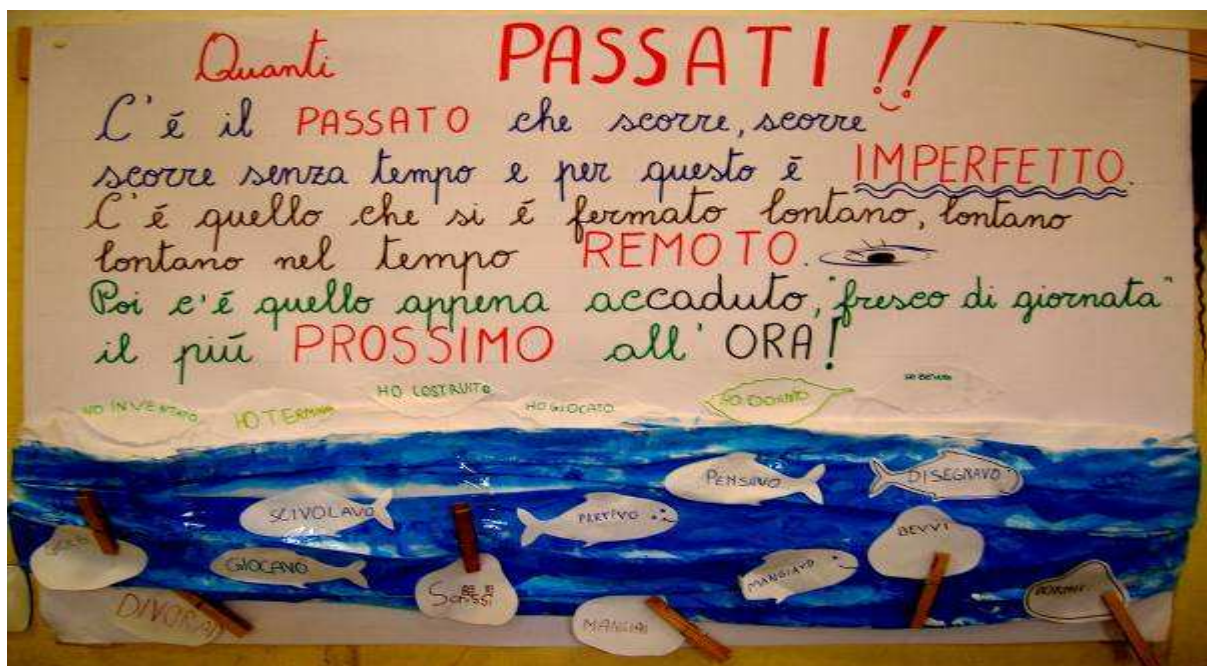 Quanti PASSATI!!
C'é il PASSATO che scorre, scorre
scorre senza tempo e per questo é IMPERFETTO.
C'é quello che si é fermato lontano, lontano
lontano nel tempo REMOTO.
Poi c'é quello appena accaduto, "fresco di giornata"
il piú PROSSIMO all'ORA!
HO INVENTATO
HO TERMINA
HO COSTRUITO
HO GIOCATO
HO DORMITO
HO BEVUTO
PENSAVO
DISEGNAVO
SCIVOLAVO
PARTIVO
BEVVI
GIOCAVO
MANGIAVO
DORMII
DIVORAI
MANGIAI